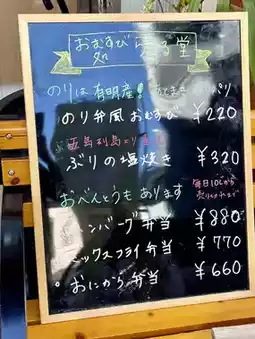 おむすび
処
堂
のりは有明産!
パリ
のり弁風おむすび ¥220
五島列島より
ぶりの塩焼き ¥320
おべんとうも あります
毎日10じから
ハンバーグ弁当 ¥880
ミックスフライ弁当 ¥770
おにから弁当 ¥660